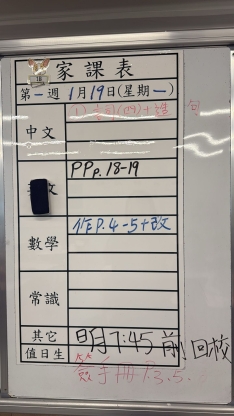 家課表
第一週 1月19日(星期一)
中文 1)
文 PP p. 18-19
數學 作 P. 4-5+改
常識
其它 明天7:45前回校
值日生 簽手冊 13.5.